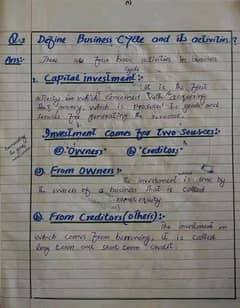 (1)
Q.2 Define Business Cycle and its activities?
Ans:- There are four basic activities in business
cycle
1. Capital investment:-
It is the first
activity in which concerned with acquiring
the money, which is good and
services for generating the revenue.
Investment comes for two sources:-
(a) Owners (b) Creditors
(a) From Owners:-
The investment is done by
the owners of a business that is called
owner equity
(b) From Creditors (others):-
The investment in
which comes from borrowing, it is called
long term and short term credit.